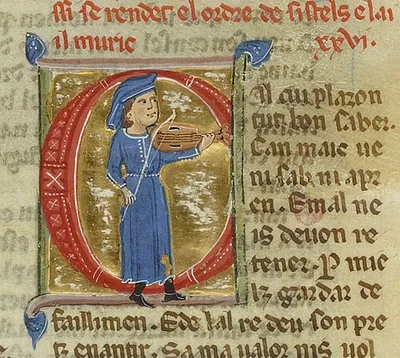 ssi se rendet el ordre de sistels e lai
il muric xxvi.
cui plazon
tuit bon saber.
Can mais ue
ni sab ni apr
en. E mal ne
is deuon re
tener. P mie
lz gardar de
faillimen. E de tal re deu son pre
tz enantir. Sa ma ualor nis uol